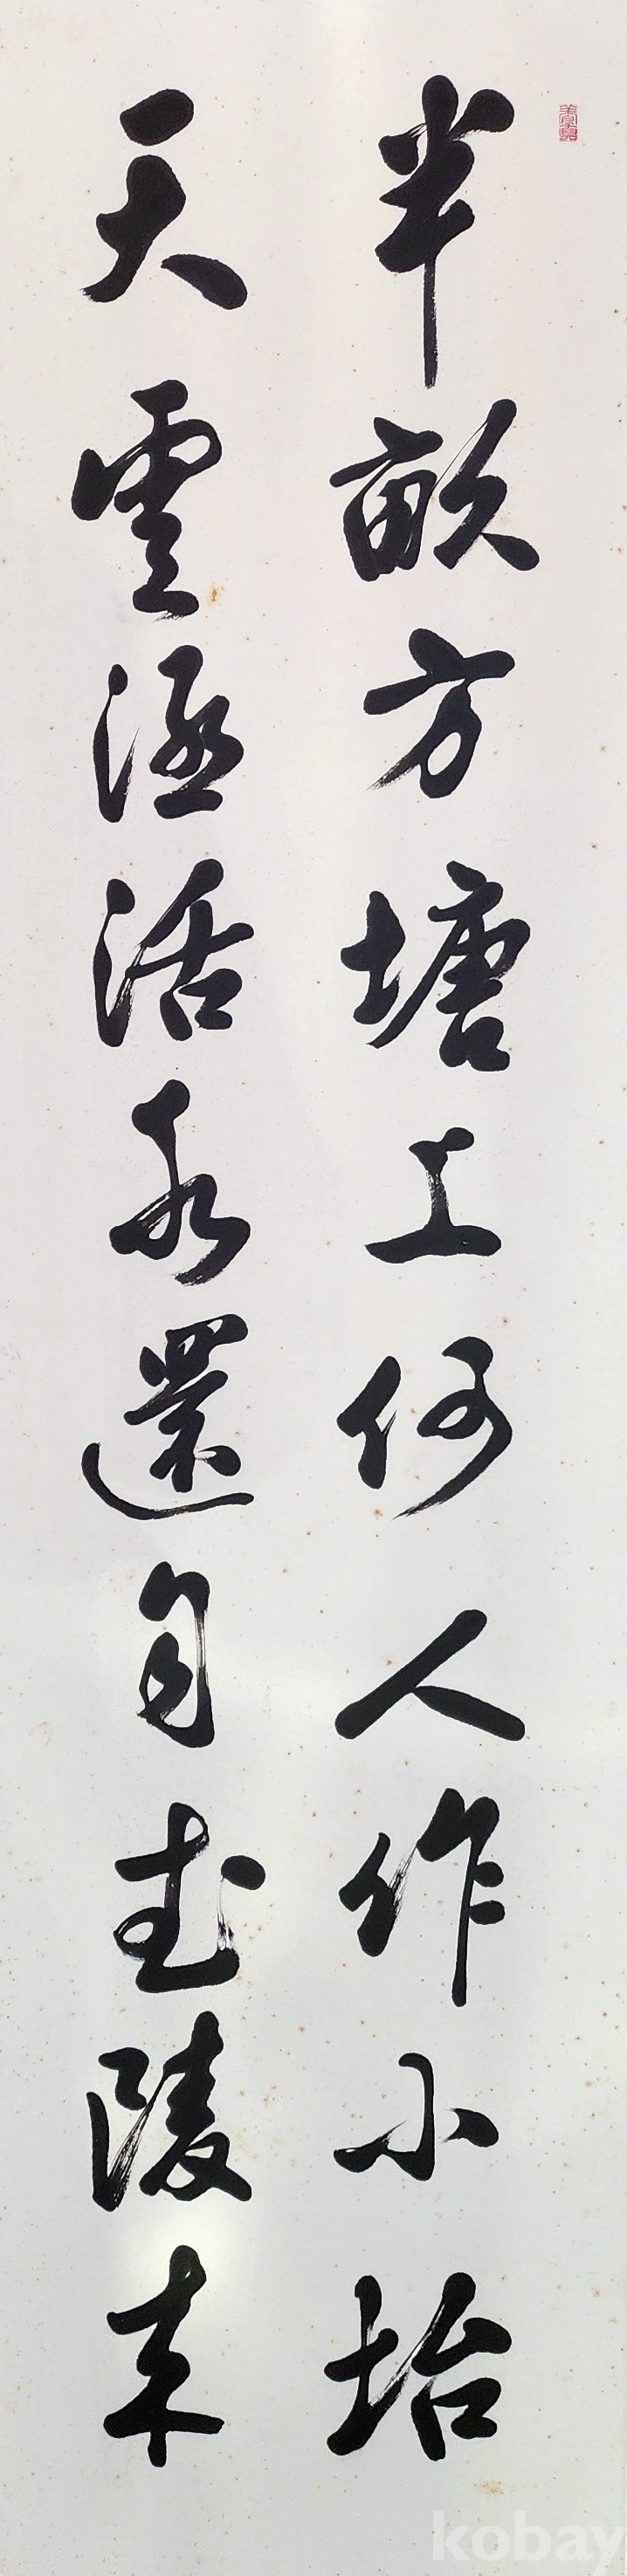 半畝方塘上何人作小坮
天雲涵活水還自武陵来
kobay